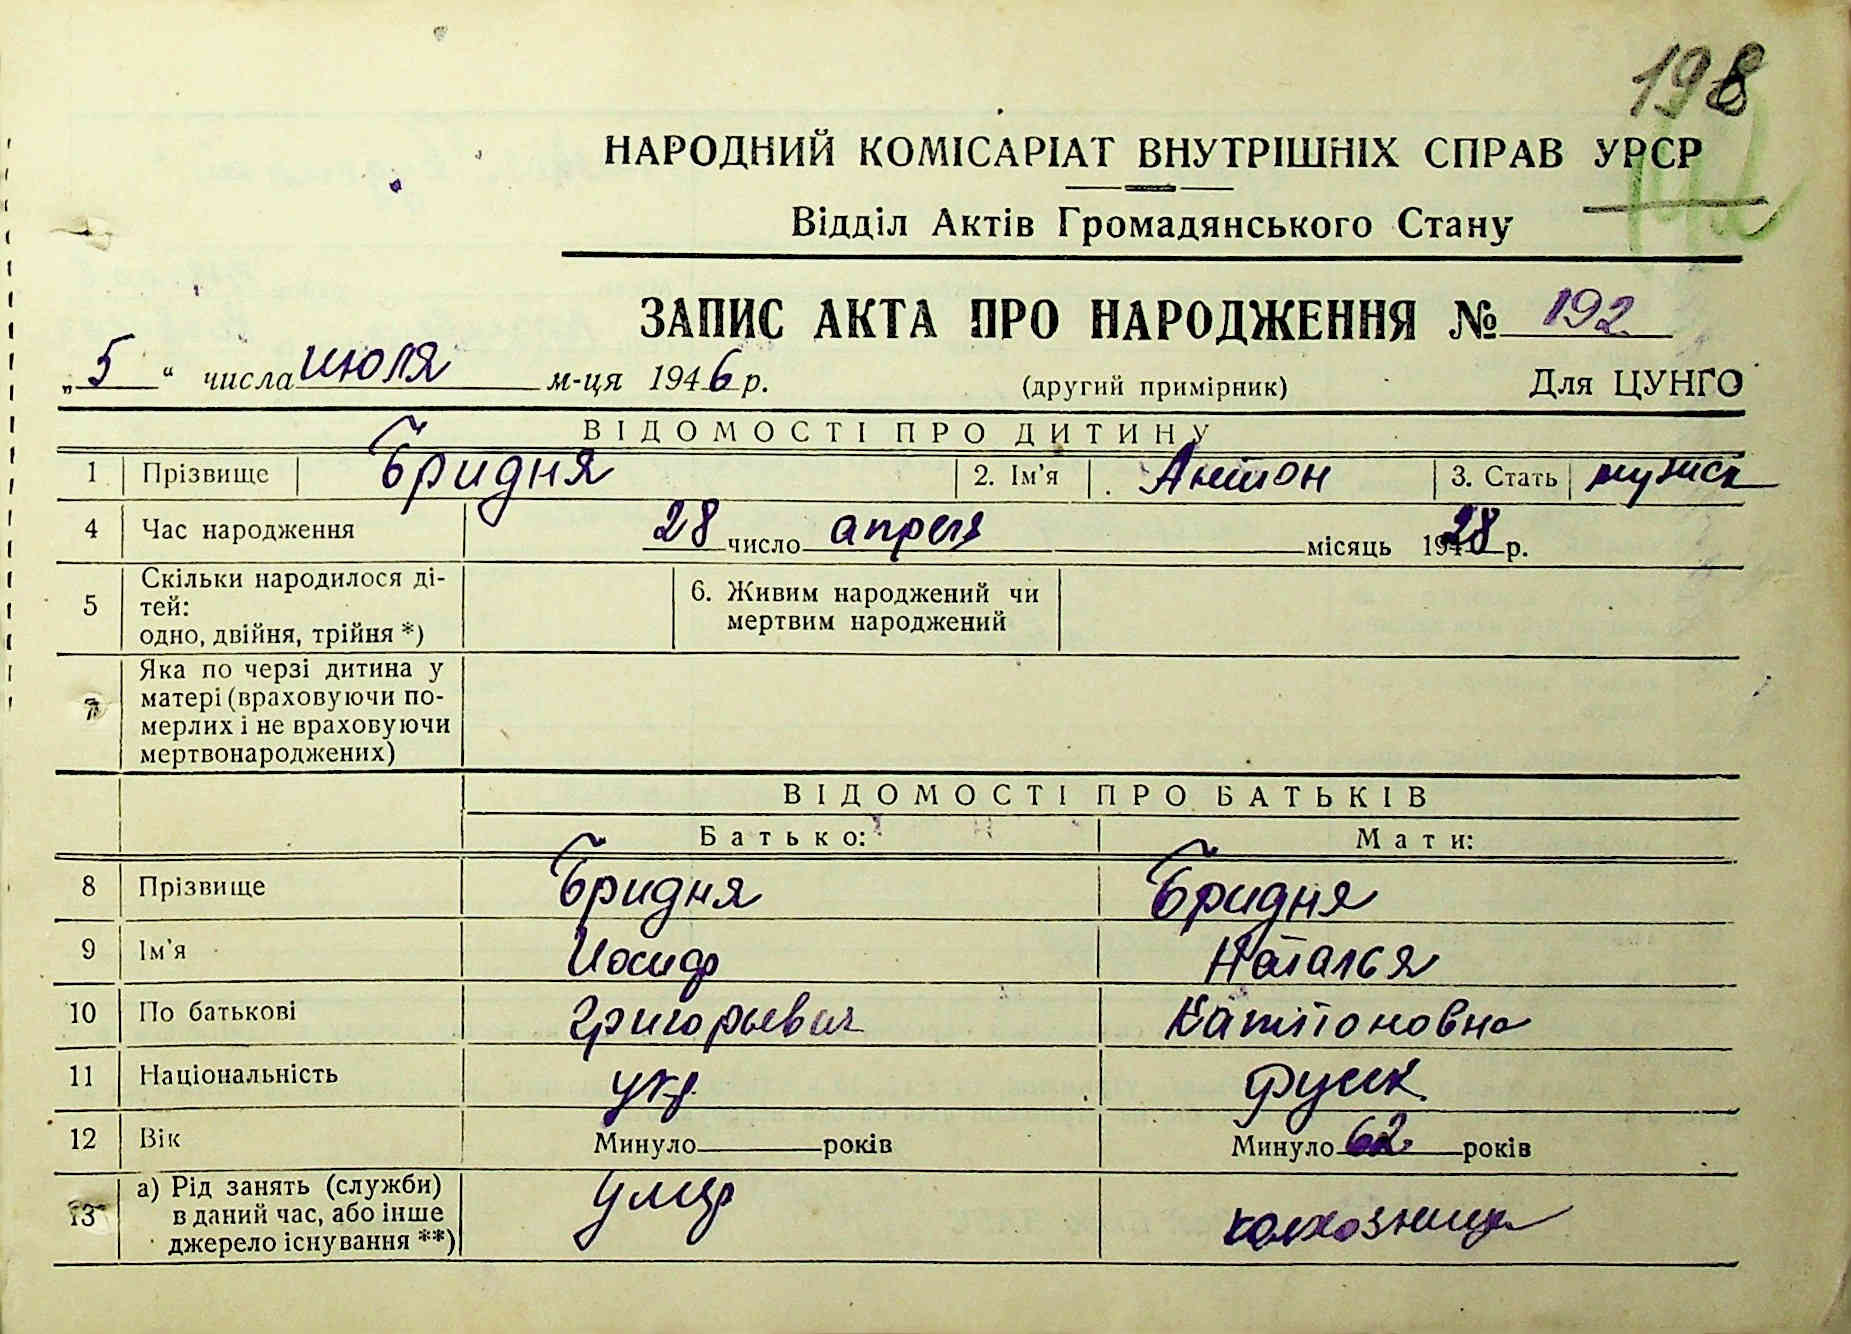 198
192
НАРОДНИЙ КОМІСАРІАТ ВНУТРІШНІХ СПРАВ УРСР
Відділ Актів Громадянського Стану
ЗАПИС АКТА ПРО НАРОДЖЕННЯ № 192
„5“ числа июля м-ця 1946 р. (другий примірник) Для ЦУНГО
ВІДОМОСТІ ПРО ДИТИНУ
1 Прізвище Бридня 2. Ім'я Антон 3. Стать мужск
4 Час народження 28 число апреля місяць 1928 р.
5 Скільки народилося ді-
тей:
одно, двійня, трійня *)
6. Живим народжений чи
мертвим народжений
7 Яка по черзі дитина у
матері (враховуючи по-
мерлих і не враховуючи
мертвонароджених)
ВІДОМОСТІ ПРО БАТЬКІВ
Батько: Мати:
8 Прізвище Бридня Бридня
9 Ім'я Иосиф Наталья
10 По батькові Григорьевич Капитоновна
11 Національність укр. русск
12 Вік Минуло років Минуло 62 років
13 а) Рід занять (служби)
в даний час, або інше
джерело існування **)
умер колхозница